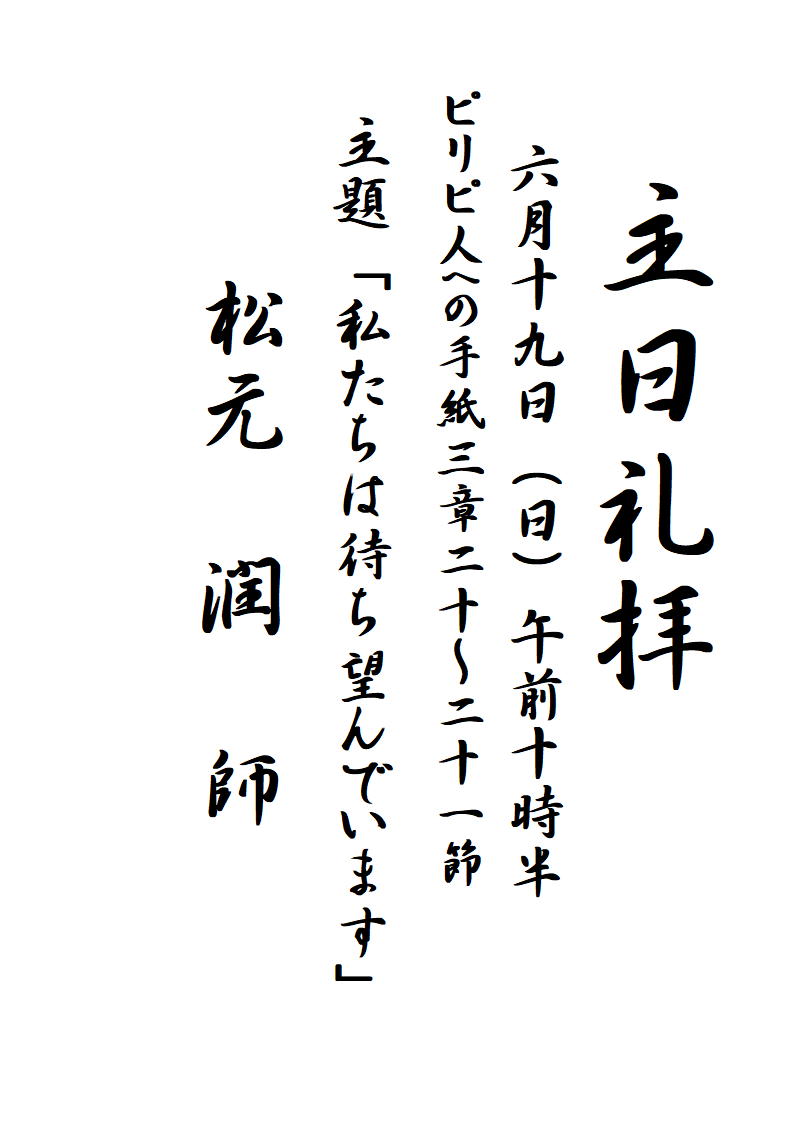 主日礼拝
六月十九日（日）午前十時半
ピリピ人への手紙三章二十～二十一節
主題「私たちは待ち望んでいます」
松元　潤　師